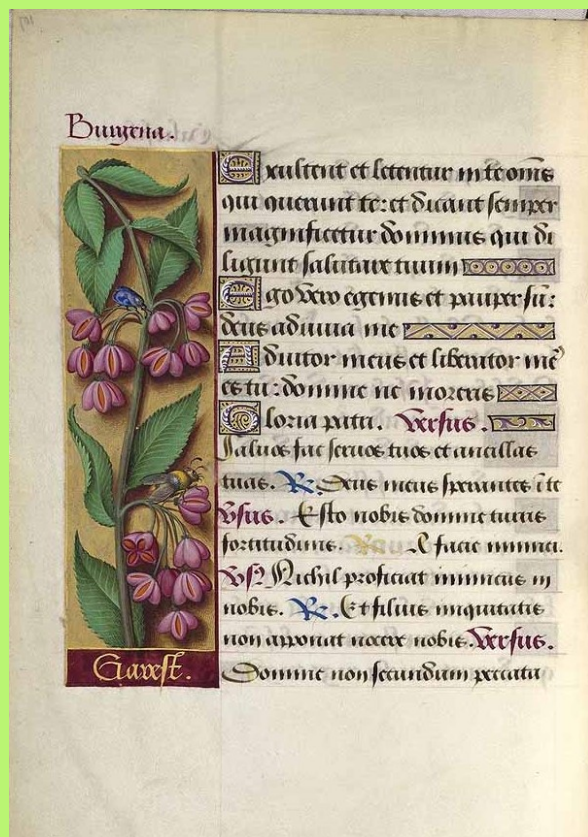 Burgena.
Exultent et letentur in te om̄s
qui querunt te: et dicant semper
magnificetur dominus qui di
ligunt salutare tuum
Ego vero egenus et pauper su͂:
deus adiuva me
Adiutor meus et liberator me᷒
es tu: domine ne moreris
Gloria patri. Versus.
Saluos fac seruos tuos et ancillas
tuas. R̷. Deus meus sperantes ī te
Vsus. Esto nobis domine turris
fortitudinis. R̷. A facie inimici.
Vs̷ Nichil proficiat inimicus in
nobis. R̷. Et filius iniquitatis
non apponat nocere nobis. Versus.
Domine non secundum peccata